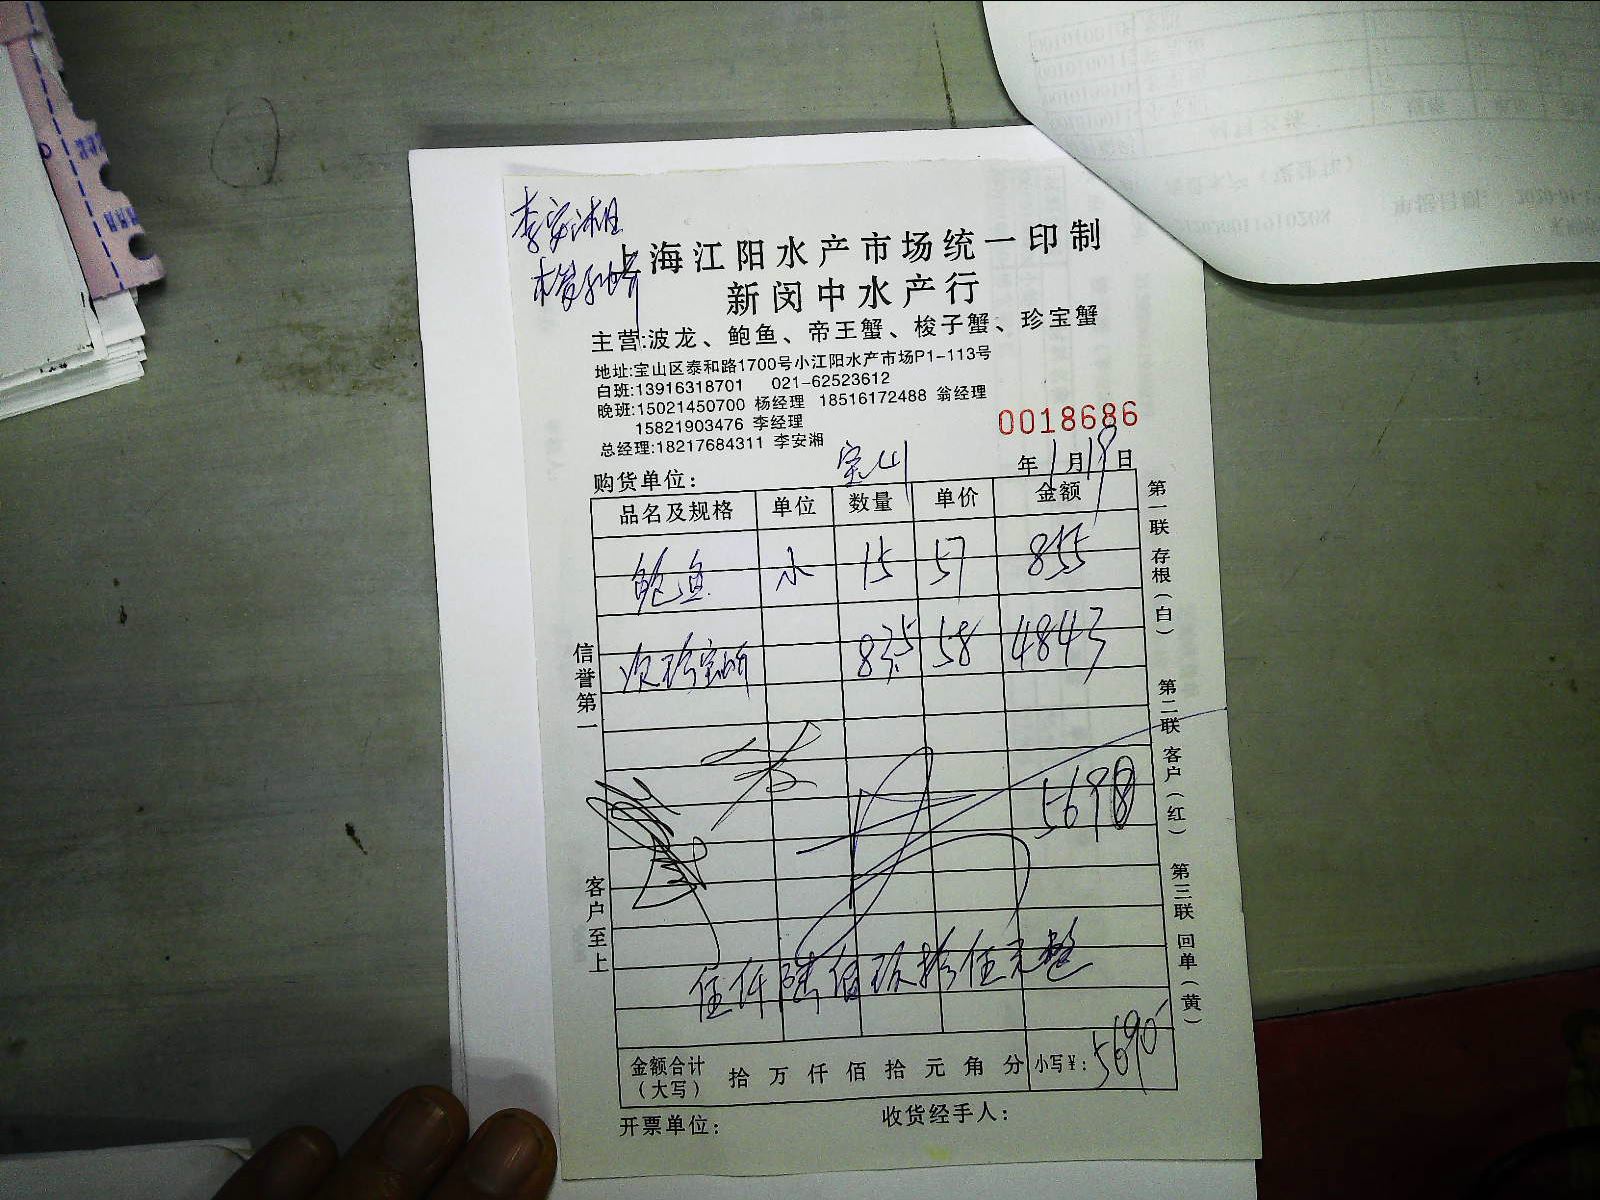 李安湘
上海江阳水产市场统一印制
新闵中水产行
主营:波龙、鲍鱼、帝王蟹、梭子蟹、珍宝蟹
地址:宝山区泰和路1700号小江阳水产市场P1-113号
白班:13916318701 021-62523612
晚班:15021450700 杨经理 18516172488 翁经理
15821903476 李经理
总经理:18217684311 李安湘
0018686
购货单位: 宝山 年1月19日
品名及规格 单位 数量 单价 金额
鲍鱼 小 15 57 855
次珍宝蟹 83.5 58 4843
5698
伍仟陆佰玖拾伍元整
金额合计(大写) 拾 万 仟 佰 拾 元 角 分 小写¥: 5695
开票单位: 收货经手人:
信誉第一
客户至上
第一联 存根(白)
第二联 客户(红)
第三联 回单(黄)